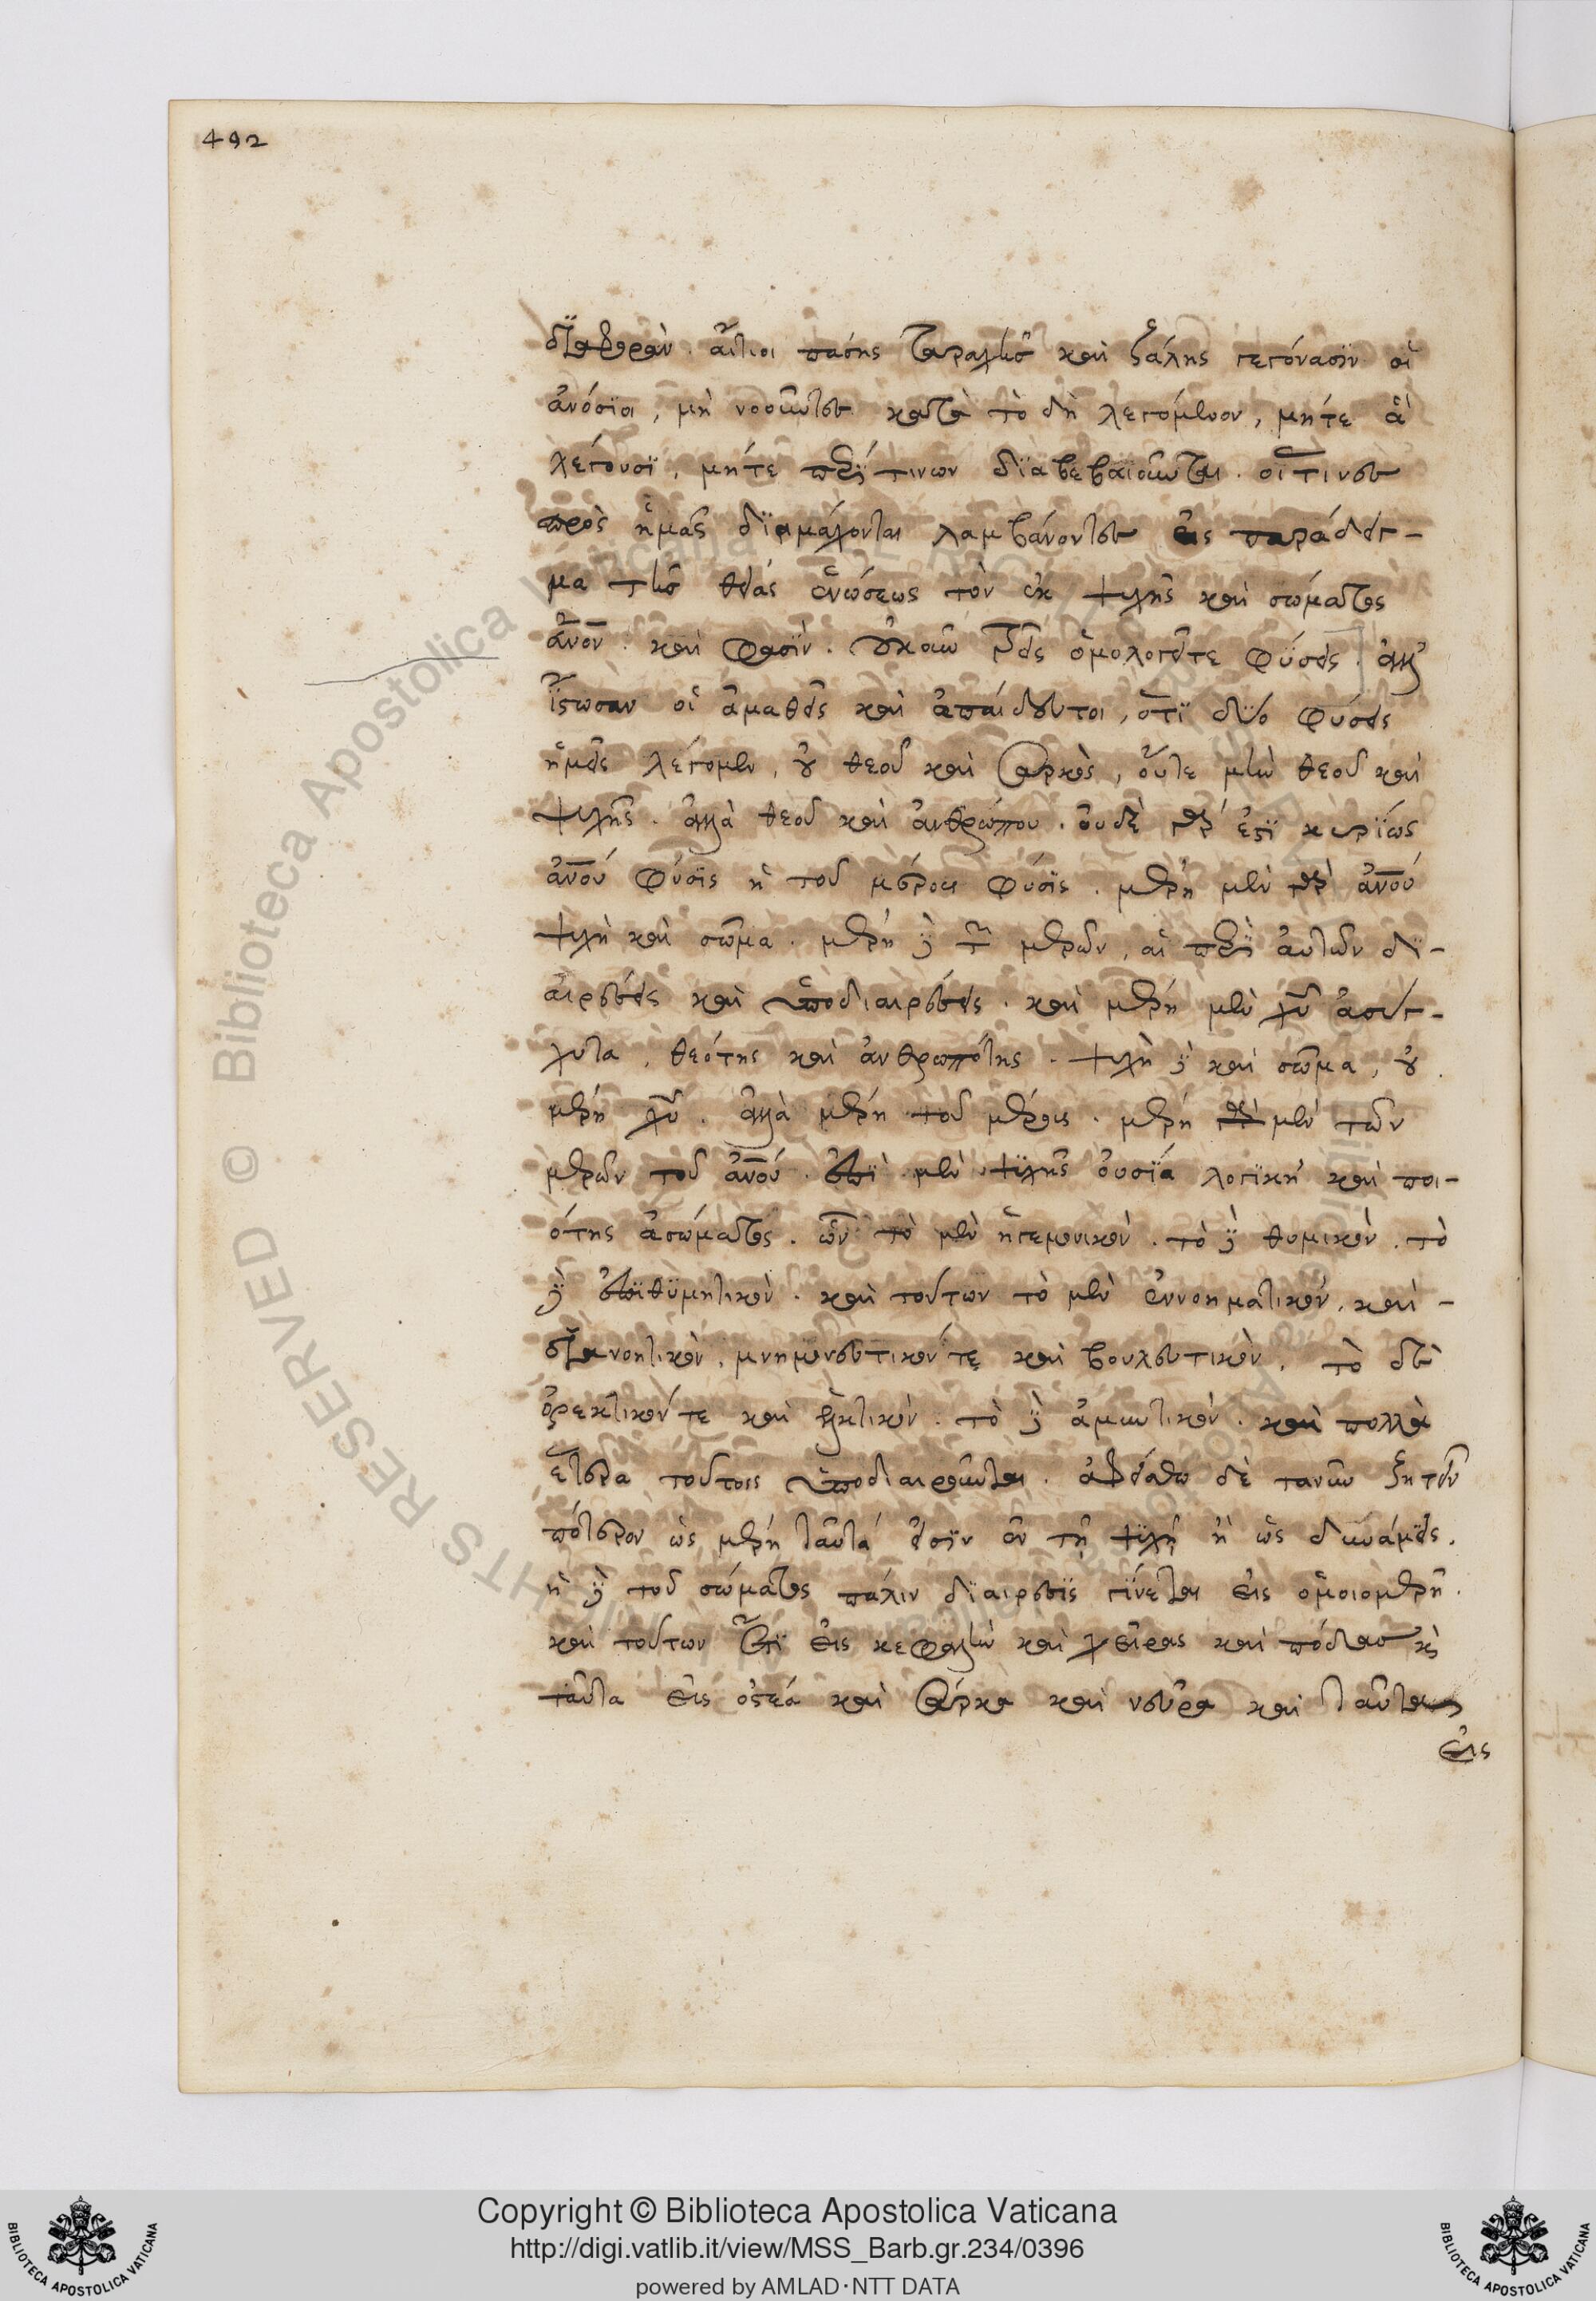 492
διαφοράν. αἴτιοι πάσης ταραχῆς καὶ ζάλης γεγόνασϊν οἱ
ἀνόσϊοι, μὴ νοοῦντες κατὰ τὸ δὴ λεγόμενον, μήτε ἃ
λέγουσϊ, μήτε περὶ τινων δϊαβεβαϊοῦνται. οἵτινες
πρὸς ἡμᾶς δϊαμάχονται λαμβάνοντες εἰς παράδειγ-
μα τῆς θείας ἑνώσεως τὸν ἐκ ψυχῆς καὶ σώματος
ἄνον. καὶ φασϊν. οὐκοῦν τρεῖς ὁμολογεῖτε φύσεις. ἀλλ'
ἴστωσαν οἱ ἀμαθεῖς καὶ ἀπαίδευτοι, ὅτϊ δύο φύσεις
ἡμεῖς λέγομεν, οὐ θεοῦ καὶ σαρκὸς, οὔτε μὴν θεοῦ καὶ
ψυχῆς. ἀλλὰ θεοῦ καὶ ἀνθρώπου. οὐδὲ γάρ ἐστϊ κυρϊώς
ἀνου φύσϊς ἡ τοῦ μέρους φύσϊς. μέρη μὲν γὰρ ἀνου
ψυχὴ καὶ σῶμα. μέρη δὲ τῶν μερῶν, αἱ περὶ αὐτῶν δϊ-
αιρέσεις καὶ ὑποδιαιρέσεις. καὶ μέρη μὲν χυ ἀσύγ-
χυτα, θεότης καὶ ἀνθρωπότης. ψυχὴ δὲ καὶ σῶμα, οὐ
μέρη χυ. ἀλλὰ μέρη τοῦ μέρους. μέρη γὰρ μὲν τῶν
μερῶν τοῦ ἀνου. ἐπϊ μὲν ψυχῆς οὐσϊα λογϊκὴ καὶ ποι-
ότης ἀσώματος. ὧν τὸ μὲν ἡγεμονικὸν. τὸ δὲ θυμικὸν. τὸ
δὲ ἐπϊθυμητικὸν. καὶ τούτων τὸ μὲν ἐννοηματικὸν, καὶ -
διανοητικὸν, μνημονευτικόν τε καὶ βουλευτικὸν. τὸ δὲ
ὀρεκτικόν τε καὶ ἑλκτικὸν. τὸ δὲ ἀμυντικὸν. καὶ πολλὰ
ἕτερα τούτοις ὑποδιαιροῦνται. ἀφείσθω δὲ τανῦν ζητεῖν
πότερον ὡς μέρη ταῦτά εἰσϊν ἐν τῇ ψυχῇ ἢ ὡς δυνάμεις.
ἡ δὲ τοῦ σώματος πάλιν δϊαιρεσϊς γίνεται εἰς ὁμοιομερῆ.
καὶ τούτων ἔτϊ εἰς κεφαλὴν καὶ χεῖρας καὶ πόδας καὶ
ταῦτα εἰς ὀστέα καὶ σάρκα καὶ νεῦρα καὶ ταῦτα
εἰς
© Biblioteca Apostolica Vaticana
Copyright © Biblioteca Apostolica Vaticana
http://digi.vatlib.it/view/MSS_Barb.gr.234/0396
powered by AMLAD·NTT DATA
BIBLIOTECA APOSTOLICA VATICANA
BIBLIOTECA APOSTOLICA VATICANA